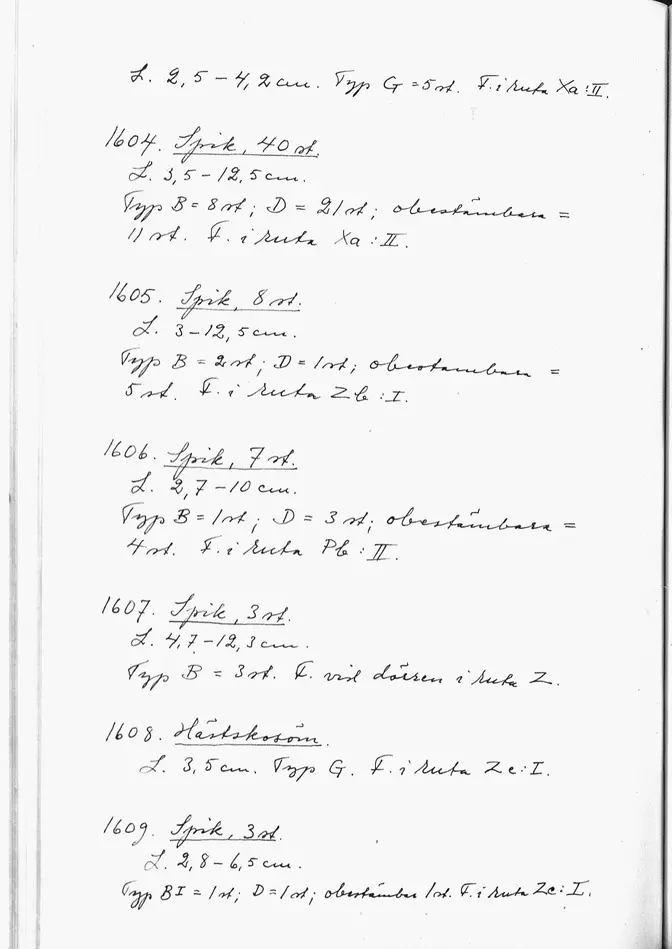 L. 2,5-4,2 cm. Typ G = 5 st. F. i ruta Xa:II.
1604. Spik, 40 st.
L. 3,5-12,5 cm.
Typ B = 8 st; D = 21 st; obestämbara =
11 st. F. i ruta Xa:II.
1605. Spik, 8 st.
L. 3-12,5 cm.
Typ B = 2 st; D = 1 st; obestämbara =
5 st. F. i ruta Zb:I.
1606. Spik, 7 st.
L. 2,7-10 cm.
Typ B = 1 st; D = 3 st; obestämbara =
4 st. F. i ruta Pb:II.
1607. Spik, 3 st.
L. 4,7-12,3 cm.
Typ B = 3 st. F. vid dörren i ruta Z.
1608. Hästskosöm.
L. 3,5 cm. Typ G. F. i ruta Zc:I.
1609. Spik, 3 st.
L. 2,8-6,5 cm.
Typ BI = 1 st; D = 1 st; obestämbar 1 st. F. i ruta Zc:I.